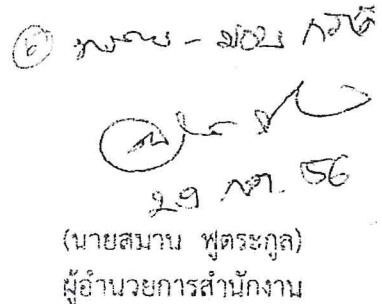 ⑥ ทราบ - มอบ
29 กค. 56
(นายสมาน ฟูตระกูล)
ผู้อำนวยการสำนักงาน